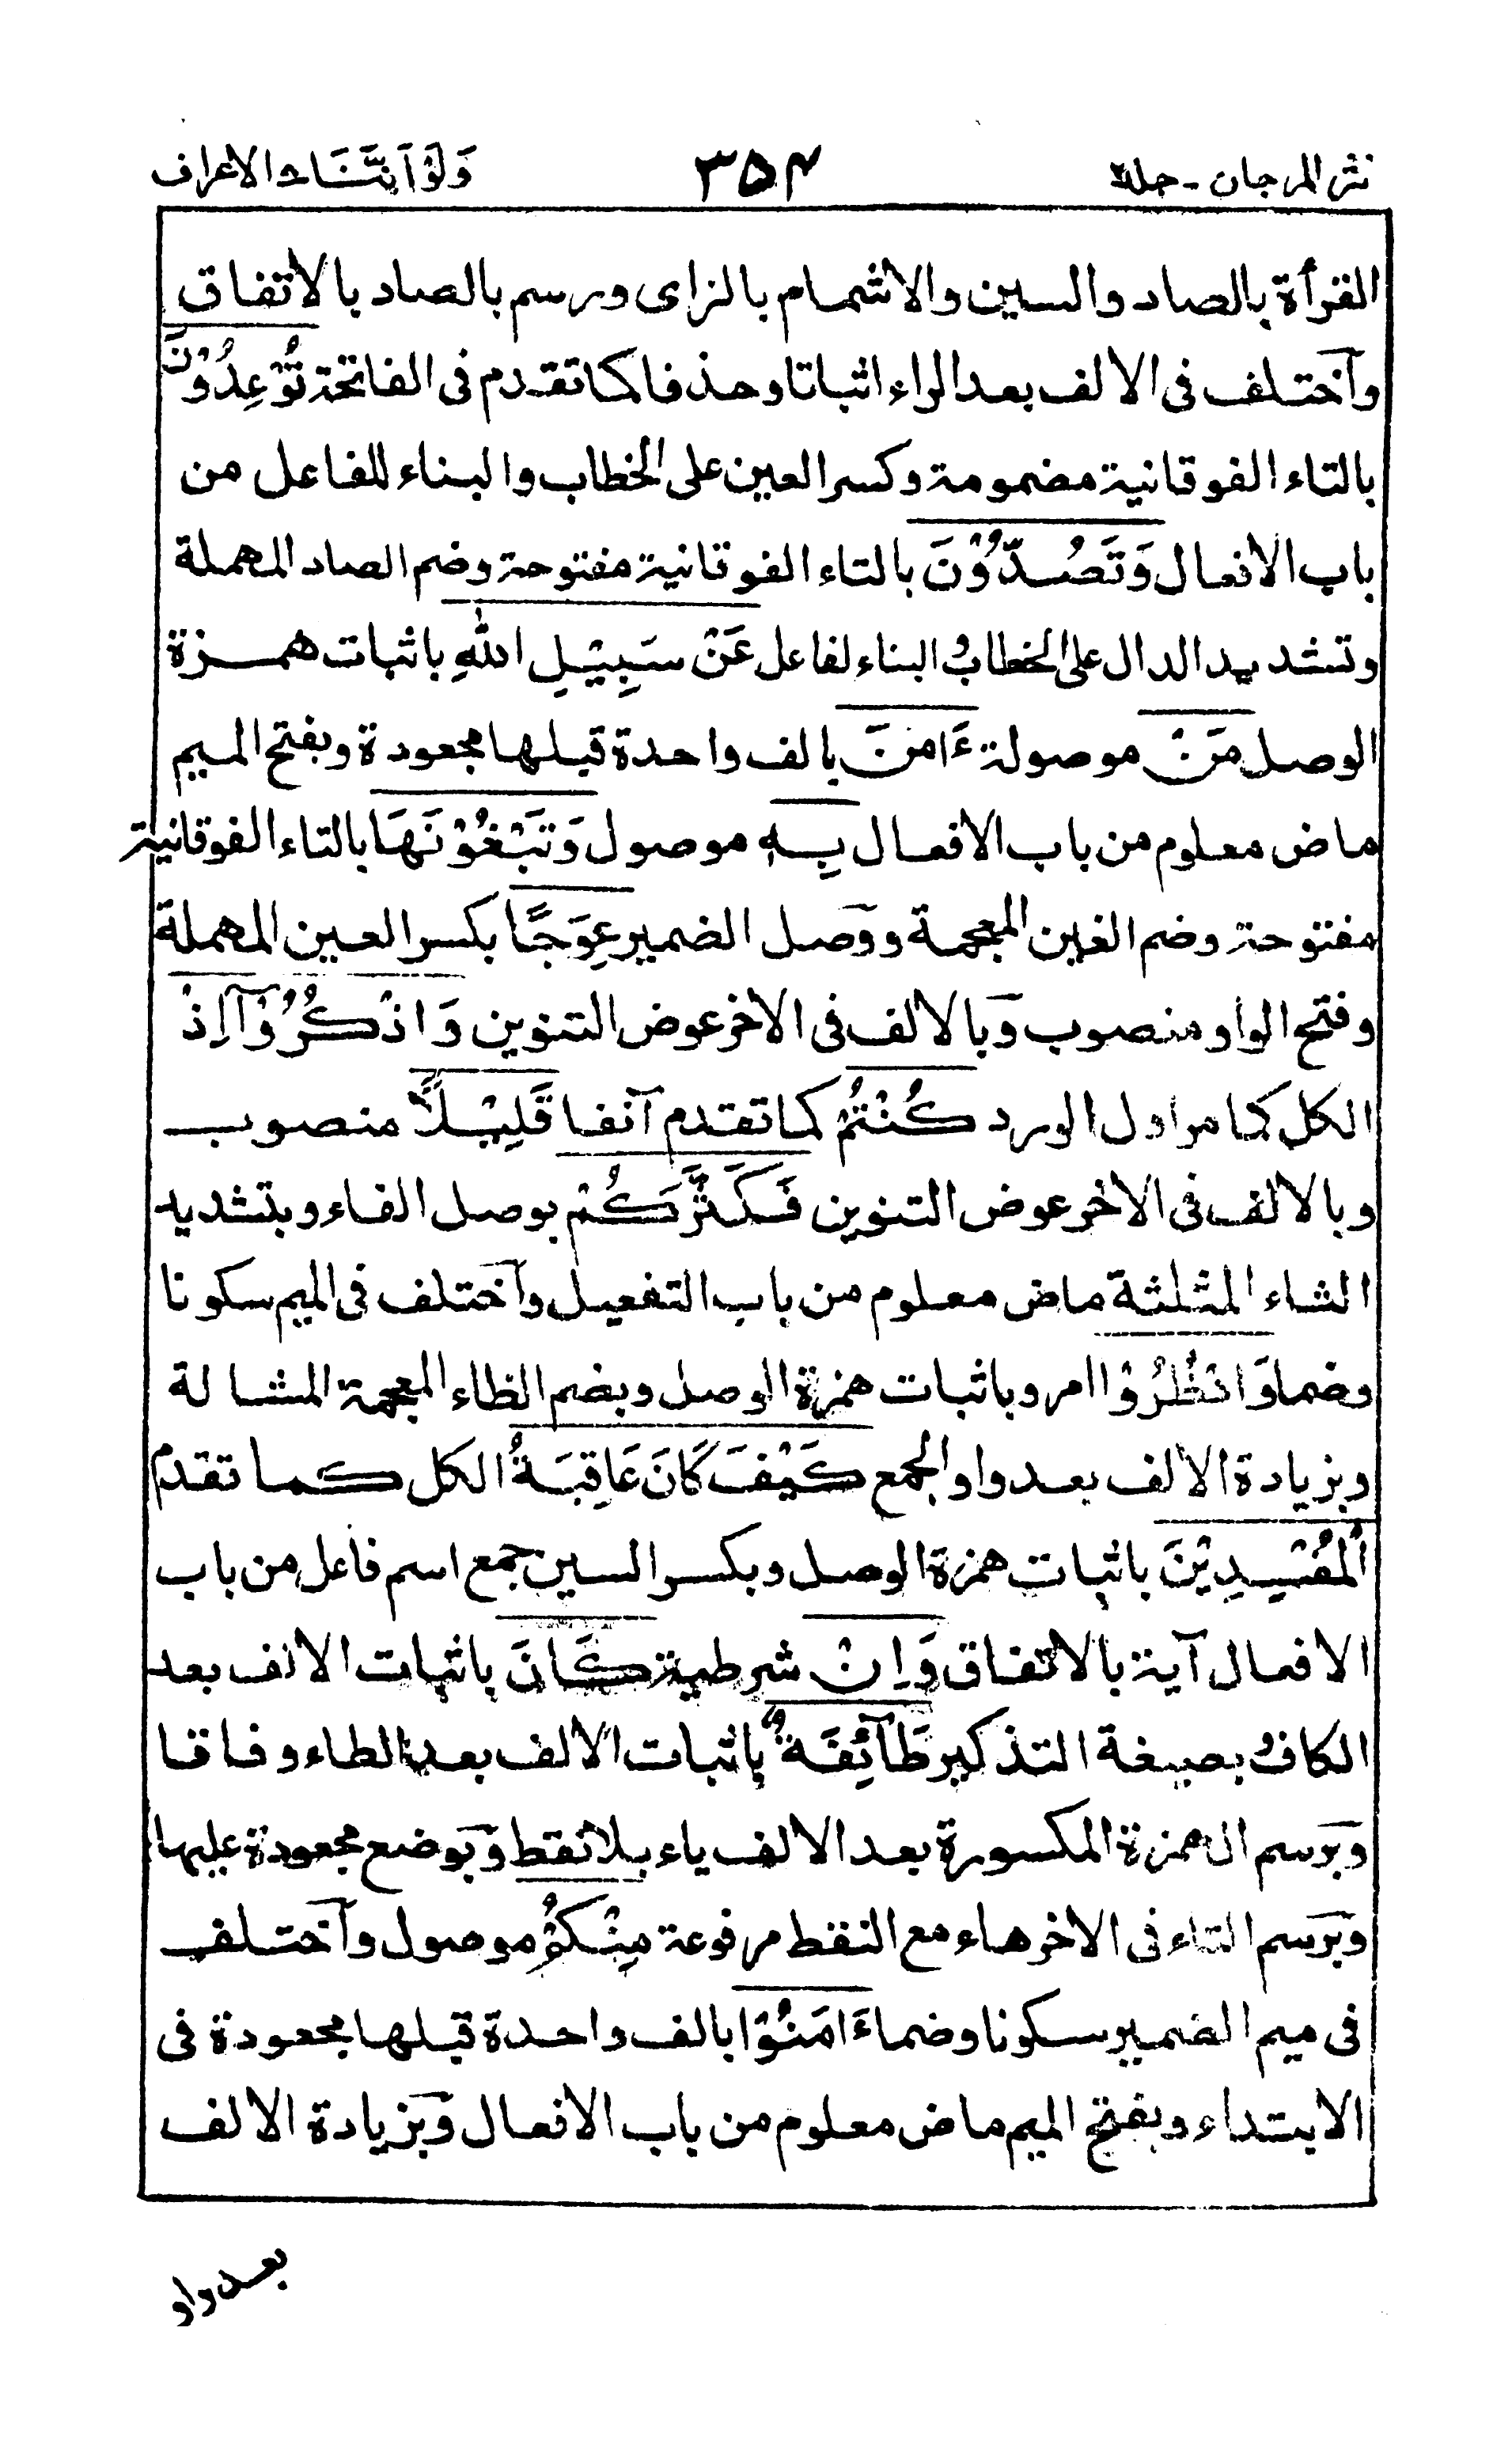 نثر المرجان - جلد٢ ٣٥٤ وَلَوْ اَنَّنَا ٨ الاعراف
القرأة بالصاد والسين والاشمام بالزاى ورسم بالصاد بالاتفاق
وآختلف فى الالف بعد الراء اثباتا وحذفا كما تقدم فى الفاتحة تُوْعِدُوْنَ
بالتاء الفوقانية مضمومة وكسر العين على الخطاب والبناء للفاعل من
باب الافعال وَتَصُدُّوْنَ بالتاء الفوقانية مفتوحة وضم الصاد المهملة
وتشديد الدال على الخطاب والبناء لفاعل عَنْ سَبِيْلِ اللهِ باثبات همزة
الوصل مَنْ موصولة ءَامَنَ بالف واحدة قبلها مجعودة وبفتح الميم
ماض معلوم من باب الافعال بِهٖ موصول وَتَبْغُوْنَهَا بالتاء الفوقانية
مفتوحة وضم الغين المعجمة ووصل الضمير عِوَجًا بكسر العين المهملة
وفتح الواو منصوب وَبالالف فى الاخر عوض التنوين وَاذْكُرُوْٓا اِذْ
الكل كما مر اول الورد كُنْتُمْ كما تقدم آنفا قَلِيْلًا منصوب
وبالالف فى الاخر عوض التنوين فَكَثَّرَكُمْ بوصل الفاء وبتشديد
الثاء المثلثة ماض معلوم من باب التفعيل وآختلف فى الميم سكونا
وضما وَانْظُرُوْا امر وباثبات همزة الوصل وبضم الظاء المعجمة المشالة
وبزيادة الالف بعد واو الجمع كَيْفَ كَانَ عَاقِبَةُ الكل كما تقدم
الْمُفْسِدِيْنَ باثبات همزة الوصل وبكسر السين جمع اسم فاعل من باب
الافعال آية بالاتفاق وَاِنْ شرطية كَانَ باثبات الالف بعد
الكاف وبصيغة التذكير طَآئِفَةٌ باثبات الالف بعد الطاء وفاقا
وَبرسم الهمزة المكسورة بعد الالف ياء بلا نقط وَبوضع مجعودة عليها
وَبرسم التاء فى الاخر هاء مع النقط مرفوعة مِنْكُمْ موصول وآختلف
فى ميم الضمير سكونا وضما ءَامَنُوْا بالف واحدة قبلها مجعودة فى
الابتداء وبفتح الميم ماض معلوم من باب الافعال وَبزيادة الالف
بعد واو